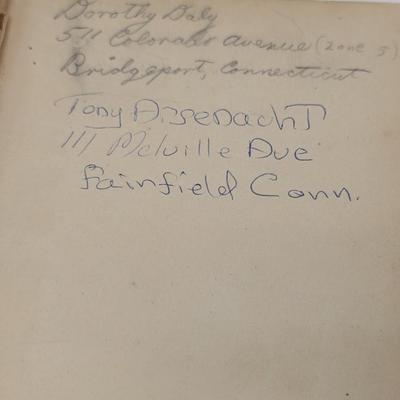 Dorothy Daly
511 Colorado Avenue (zone 5)
Bridgeport, Connecticut
Tony
111 Melville Ave
Fairfield Conn.